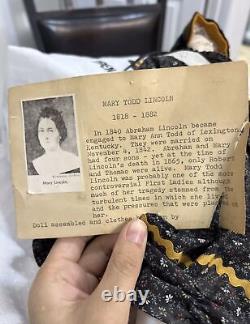 MARY TODD LINCOLN
1818 - 1882
In 1840 Abraham Lincoln became
engaged to Mary Ann Todd of Lexington,
Kentucky. They were married on
November 4, 1842. Abraham and Mary
had four sons - yet at the time of
Lincoln's death in 1865, only Robert
and Thomas were alive. Mary Todd
Lincoln was probably one of the most
controversial First Ladies although
much of her tragedy stemmed from the
turbulent times in which she lived
and the pressures that were placed on
her.
Doll assembled and clothes by
Mary Lincoln.